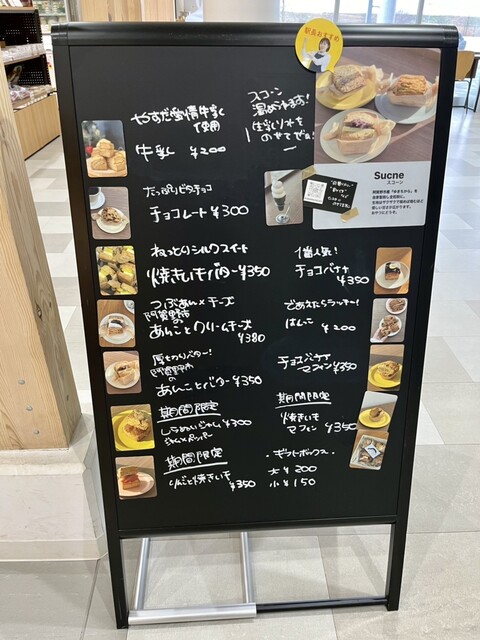 駅長おすすめ
やすだ愛情牛乳
使用
牛乳 ¥200
スコーン
温められます!
のせてぜひ!
Sucne
スコーン
たっぷりビタチョコ
チョコレート ¥300
ねっとりシルクスイート
焼きいもバター ¥350
つぶあん×チーズ
阿賀野市の
あんことクリームチーズ
¥380
厚切りバター!
阿賀野市の
あんことバター ¥350
期間限定
¥300
期間限定
りんごと焼きいも ¥350
1番人気!
チョコバナナ
¥350
であえたらラッキー!
はんこ ¥200
チョコバナナ
マフィン ¥350
期間限定
焼きいも
マフィン ¥350
・ギフトボックス・
大 ¥200
小 ¥150